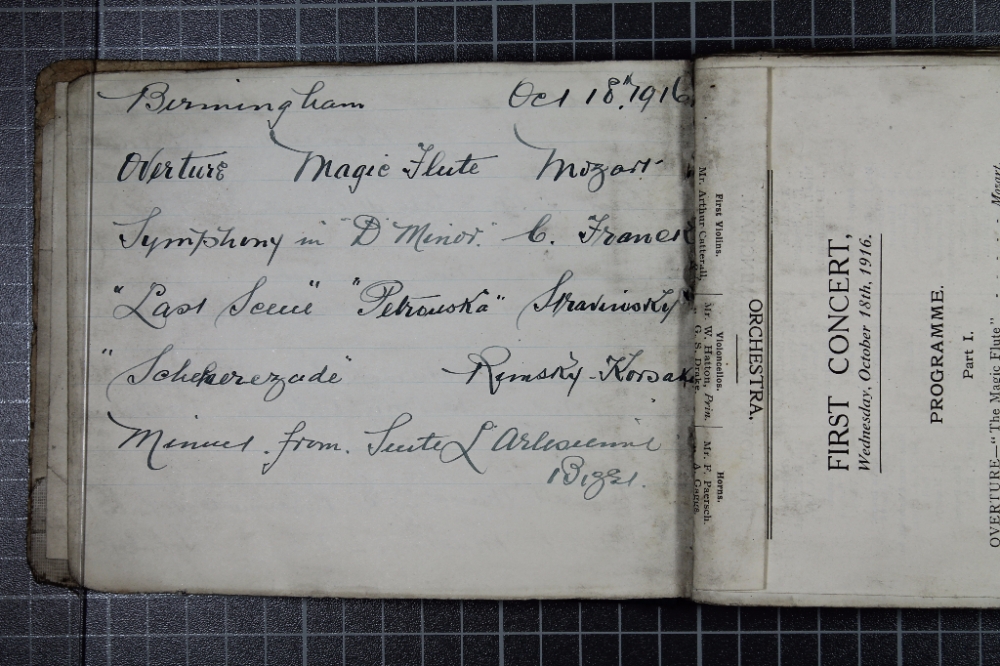 Birmingham Oct 18th, 1916
Overture Magic Flute Mozart
Symphony in "D Minor." C. Franck
"Last Scene" "Petrouska" Stravinsky
"Scheherezade" Rimsky-Korsak
Minuet from Suite L'Arlesienne
Bizet.
ORCHESTRA.
First Violins.
Mr. Arthur Catterall,
Violoncellos.
Mr. W. Hatton, Prin.
" G. S. Drake.
Horns.
Mr. F. Paersch.
FIRST CONCERT,
Wednesday, October 18th, 1916.
PROGRAMME.
Part I.
OVERTURE—"The Magic Flute" - - Mozart